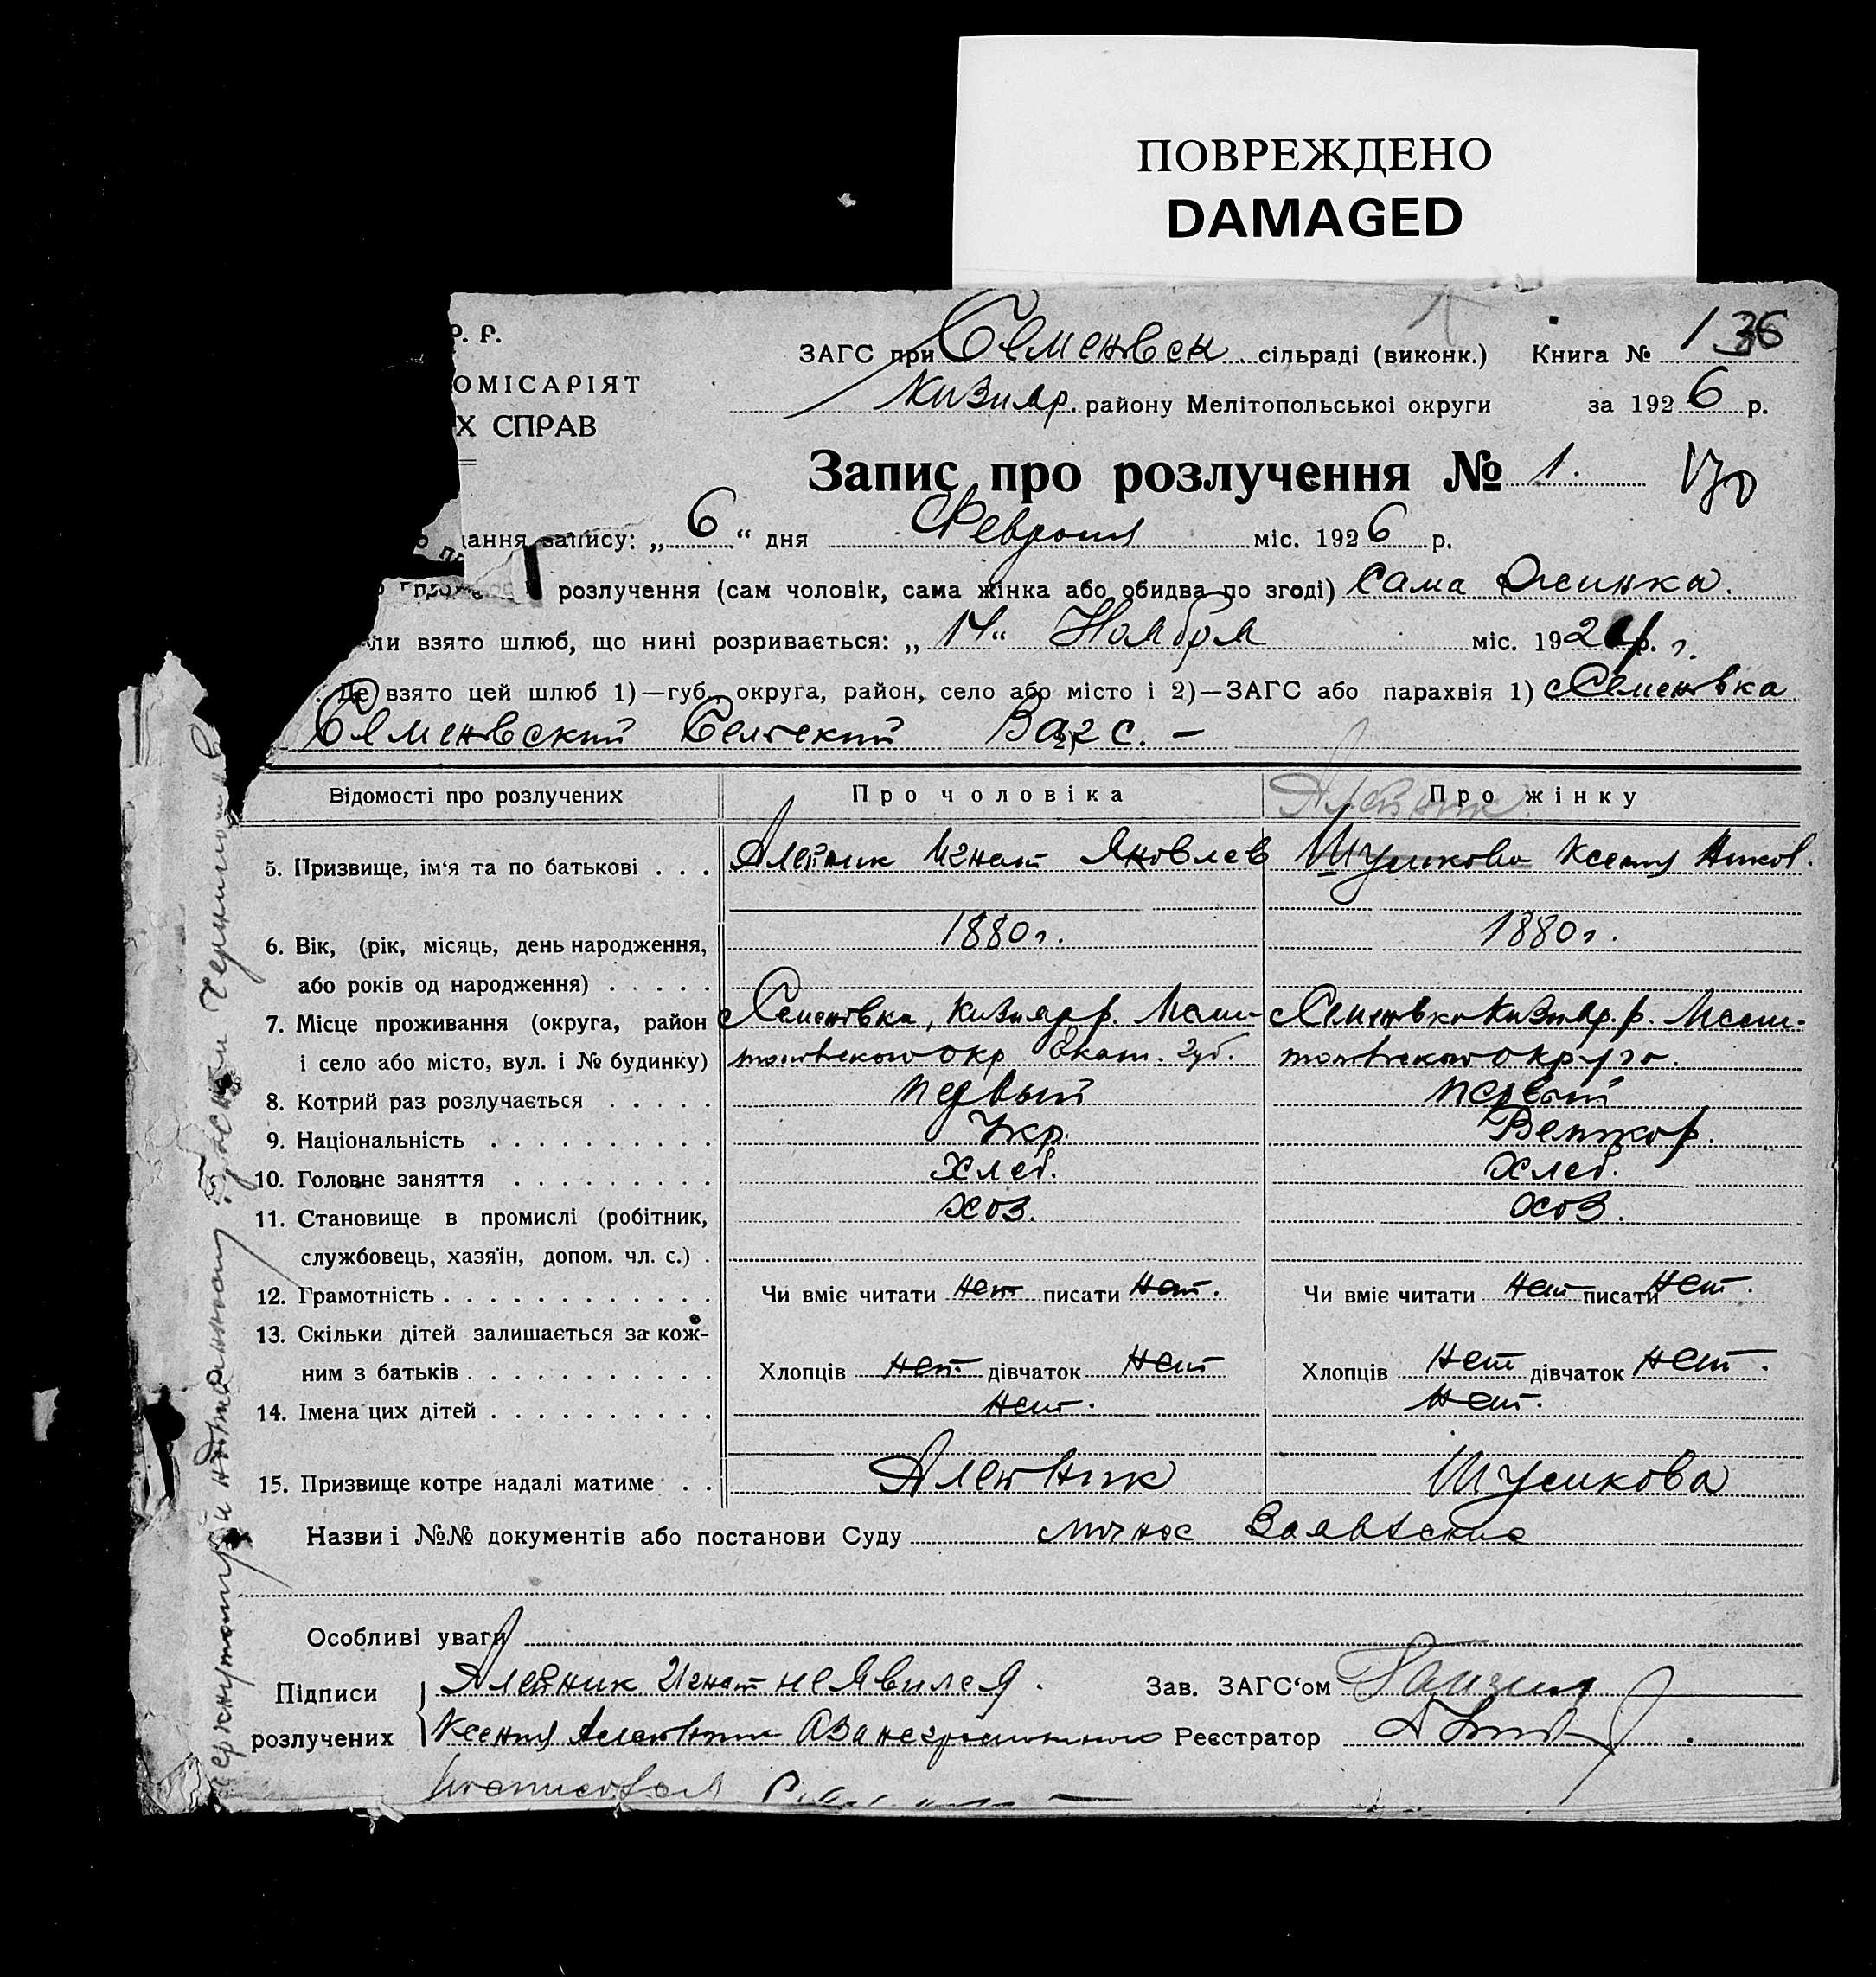 ПОВРЕЖДЕНО
DAMAGED
Р. Р.
ОМІСАРІЯТ
Х СПРАВ
ЗАГС при Семеновск сільраді (виконк.) Книга № 136
Кизияр. району Мелітопольської округи за 1926 р.
Запис про розлучення № 1.
дання запису: „ 6 “ дня Февраля міс. 1926 р.
розлучення (сам чоловік, сама жінка або обидва по згоді) сама Жинка.
ли взято шлюб, що нині розривається: „ 14 “ Ноября міс. 1924 р. г.
Де взято цей шлюб 1)—губ., округа, район, село або місто і 2)—ЗАГС або парахвія 1) с Семеновка
Семеновский Сельский Загс. —
Відомості про розлучених Про чоловіка Про жінку
Алейник
5. Призвище, ім‘я та по батькові . . . Алейник Игнат Яковлев Шушкова Ксения Яковл.
6. Вік, (рік, місяць, день народження, 1880 г. 1880 г.
або років од народження) . . . . .
7. Місце проживання (округа, район с Семеновка, Кизияр р. Мели- с Семеновка Кизияр. р. Мели-
і село або місто, вул. і № будинку) топольского окр Екат. Губ. топольского округа.
8. Котрий раз розлучається . . . . . первый первый
9. Національність . . . . . . . . . . Укр. Великор.
10. Головне заняття . . . . . . . . . Хлеб. Хлеб.
11. Становище в промислі (робітник, хоз. хоз.
службовець, хазяїн, допом. чл. с.) .
12. Грамотність . . . . . . . . . . . . Чи вміє читати нет писати нет. Чи вміє читати нет писати нет.
13. Скільки дітей залишається за кож-
ним з батьків . . . . . . . . . . . Хлопців нет дівчаток нет Хлопців нет дівчаток нет.
14. Імена цих дітей . . . . . . . . . . нет. нет.
15. Призвище котре надалі матиме . . Алейник Шушкова
Назви і №№ документів або постанови Суду личное Заявление
Особливі уваги
Підписи Алейник Игнат не явился. Зав. ЗАГС‘ом
розлучених Ксения Алейник А за неграмотного Реєстратор